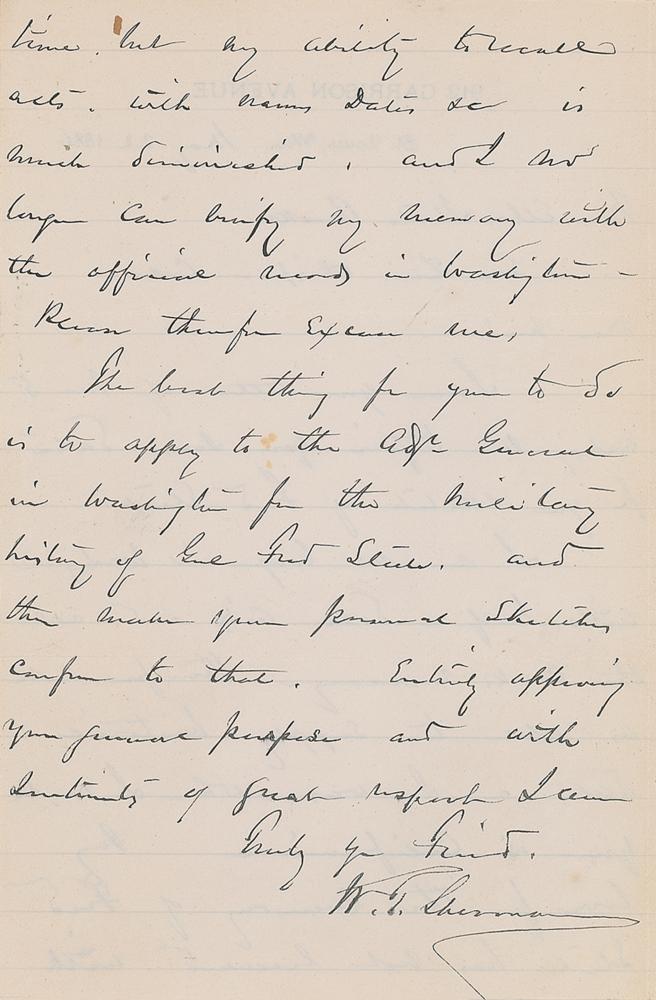 time, but my ability to recall
acts, with names Dates &c is
much diminished, and I no
longer can verify my memory with
the official records in Washington -
Please therefore Excuse me,
The best thing for you to do
is to apply to the Adjt General
in Washington for the Military
history of Genl Fred Steele, and
then make your personal Sketches
conform to that. Entirely approving
your general purpose and with
Sentiments of great respect I am
Truly yr Friend.
W. T. Sherman